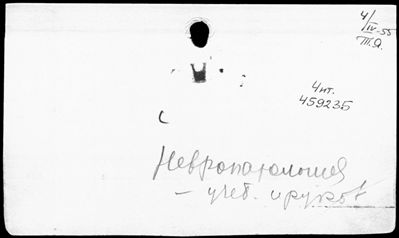 4/IV-55
Т.О.
Чит.
459235
Невропатология
— учеб. и руков